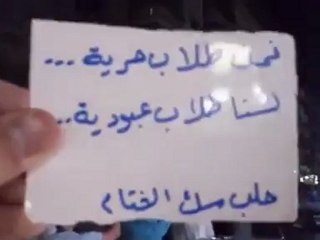 نحن طلاب حرية ...
لسنا طلاب عبودية ..
حلب مسك الختام